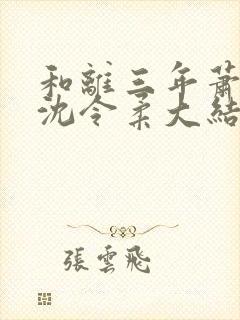 和離三年蕭
沈令柔大結
張雲飛